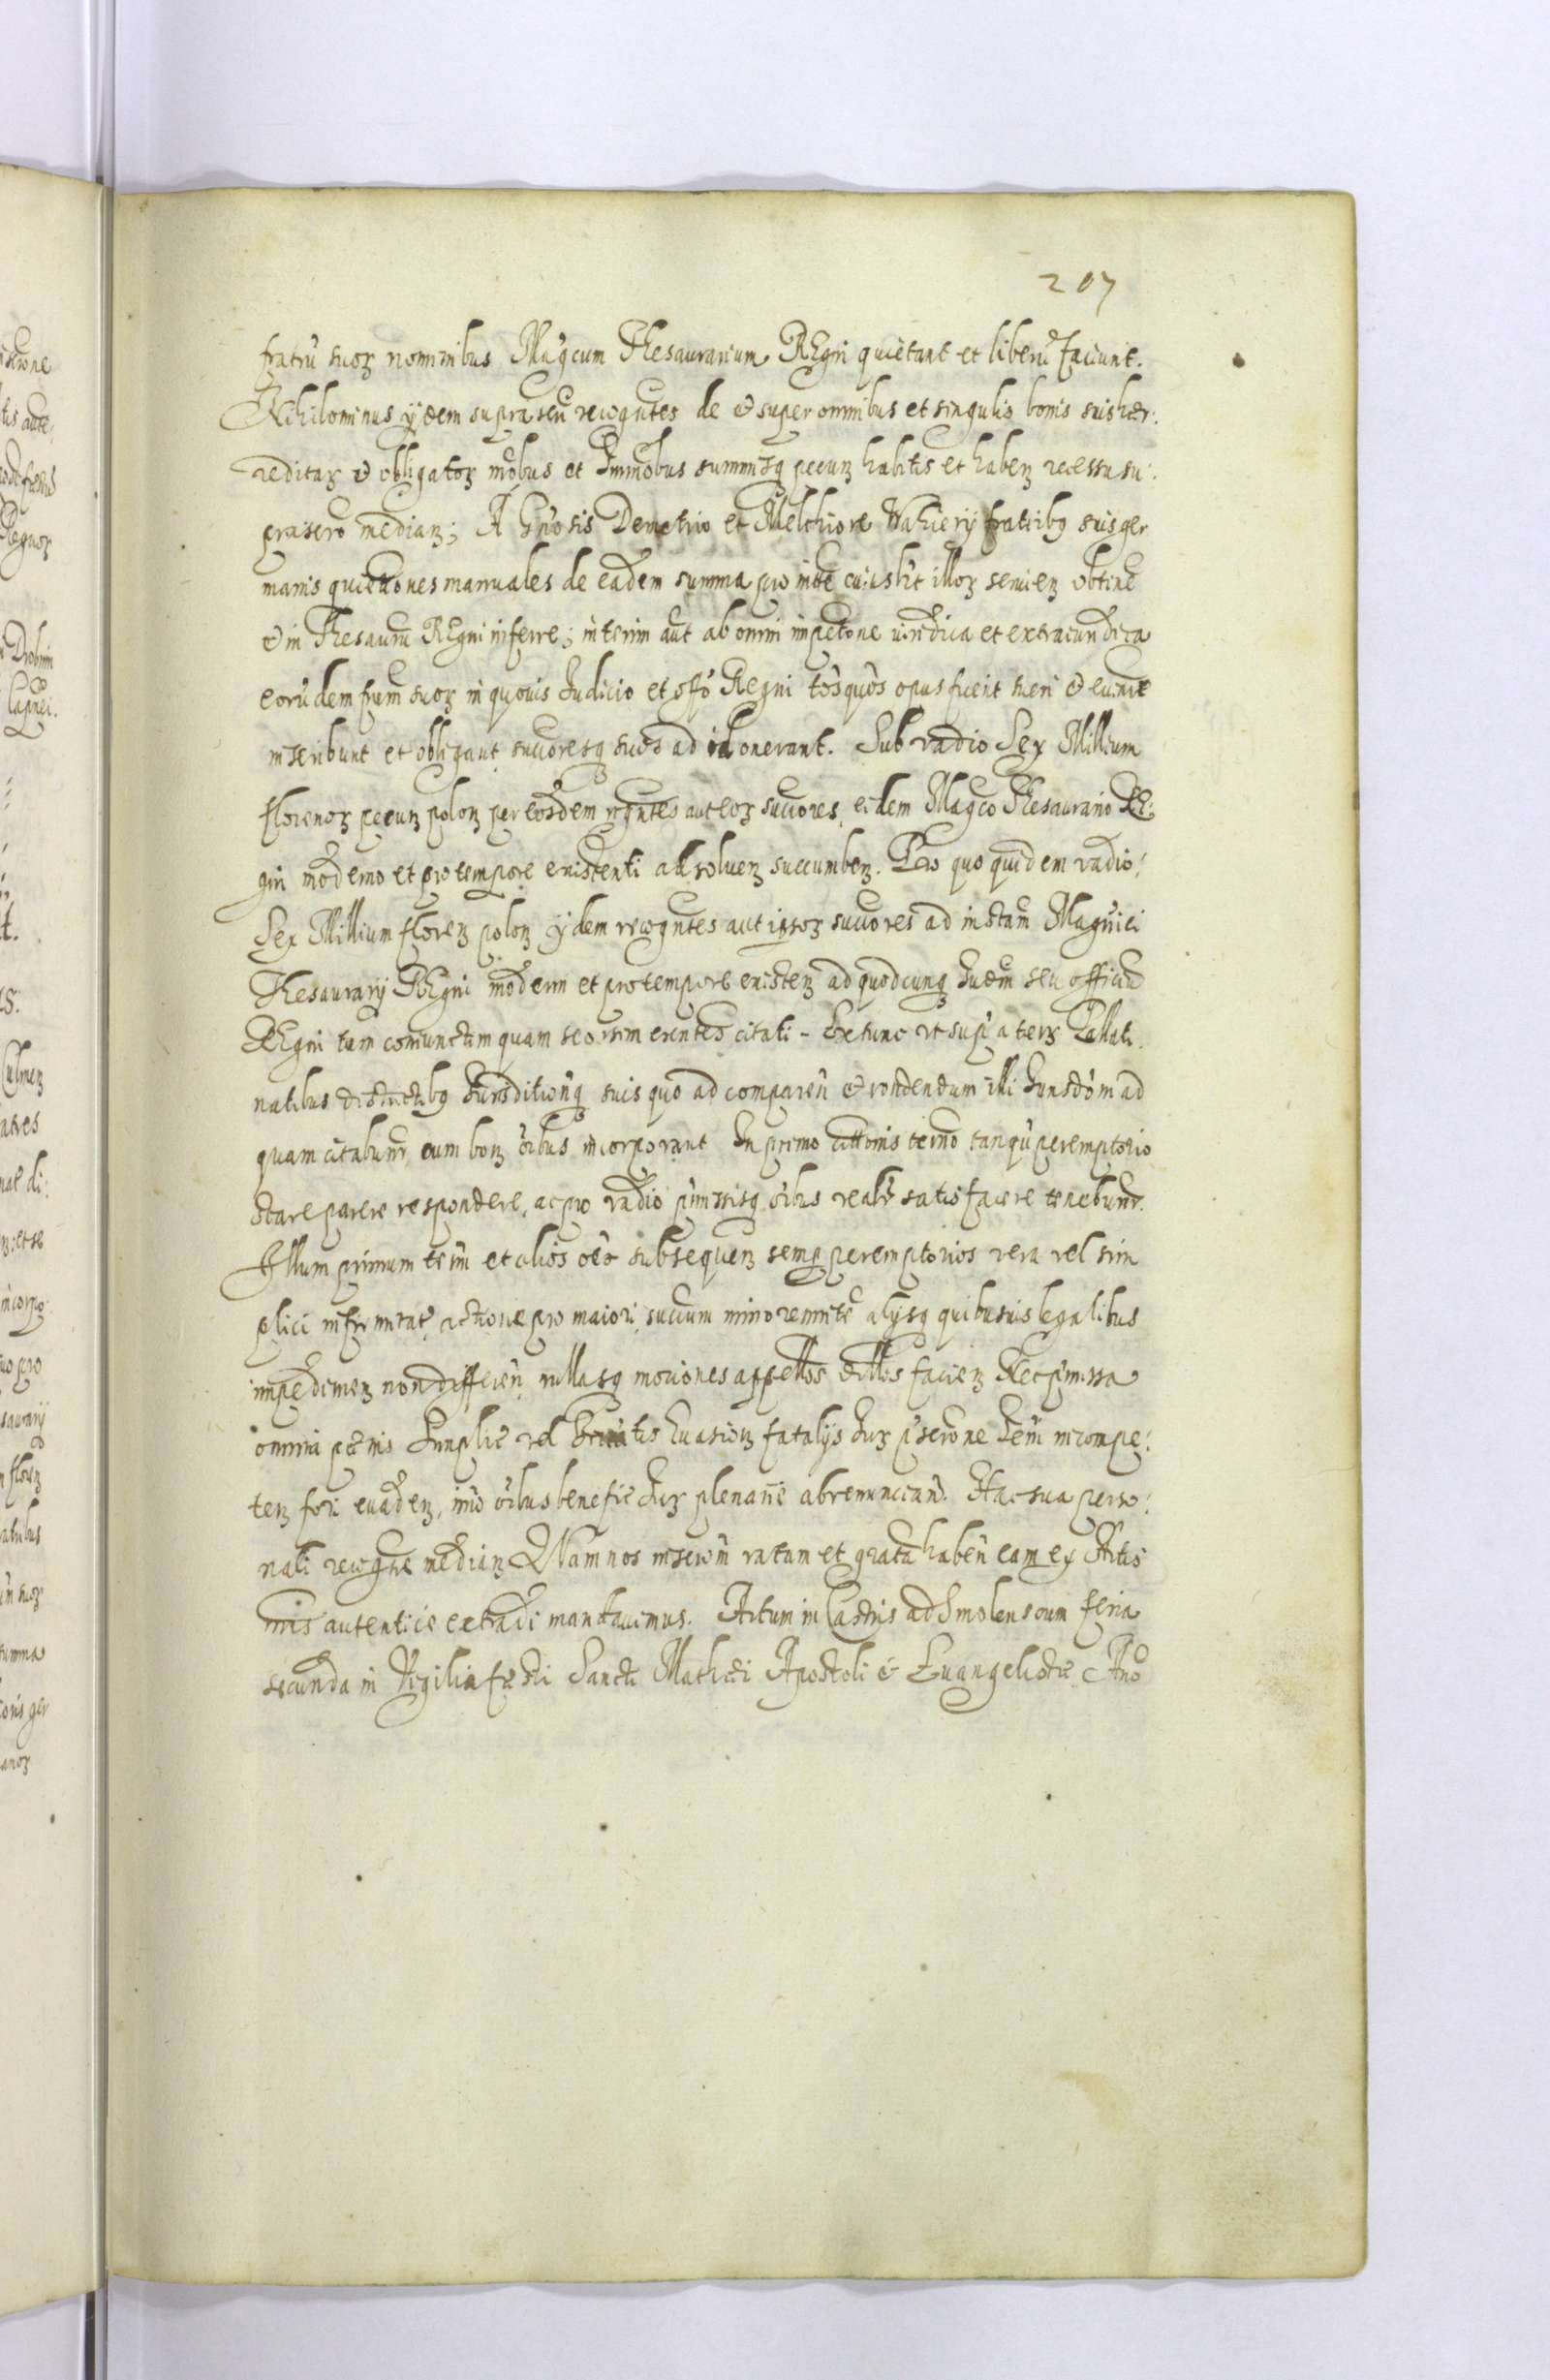 207
fratrũ suoꝝ nominibus Mag̃cum Thesaurarium REgni quietant et liberũ faciunt.
Nihilominus ijdem suprascũ recog̃ntes de & super omnibus et singulis bonis suis hær:
reditaꝝ & obligatoꝝ mõbus et Immõbus summisq pecunꝫ habitis et habenꝫ recessu su:
prascro medianꝫ; A Gnõsis Demetrio et Melchiore fratribq suis ger
manis quiettones manuales de eadem summa pro inde cuiuslit illoꝝ servienꝫ obtine
& in Thesaurũ REgni inferre; interim aut ab omni impetone iuridica et extraiuridica
eorũdem frum suoꝝ in quovis Iudicio et offõ Regni tõs quõs opus fuerit tueri & evince
inscribunt et obligant succoresq suos ad id onerant. Sub vadio Sex Millium
florenoꝝ pecunꝫ polonꝫ per eosdem rg̃ntes aut eoꝝ succores, eidem Mag̃co Thesaurario RE:
gni moderno et pro tempore existenti absolvenꝫ succumbenꝫ. Pro quo quidem vadio:
Sex Millium florenꝫ polonꝫ ijdem recog̃ntes aut ipsoꝝ succores ad instam Magnici
Thesaurarij REgni moderni et pro tempore existenꝫ ad quodcunq Iudm seu officiũ
REgni tam coniunctim quam seorsim citati - Ex tunc ut sup̃ a terꝝ Pallati
natibus districtibq Iurisditionq suis quo ad comparen & rondendum illi Iurisdõm ad
quam citabunr, cum bonꝫ oĩbus incorporant In primo cittonis termo tanqũ peremptorio
stare parere respondere, ac pro vadio pũmissisq oĩbus realr satisfacere tenebunr.
Illum primum term et alios oẽs subsequenꝫ semꝑ peremptorios vera vel sim
plici infirmitate, actione pro maiori, succum minorennite alijsq quibusvis legalibus
impedimenꝫ non differen nullasq motiones appellos faciens
omnia pœnis vel fatalijs Iuꝝ incompe:
tenꝫ fori evadenꝫ, imo oĩbus benefic Iuꝝ plenarie abrenunccian. Hac sua perso:
nali recog̃ne medianꝫ Quam nos inscron ratam et gratã haben eam ex Actis
nris autentice extradi mandavimus. Actum in Castris ad Smolenscum feria
secunda in Vigilia festi Sancti Mathæi Apostoli & Evangelistæ Anõ